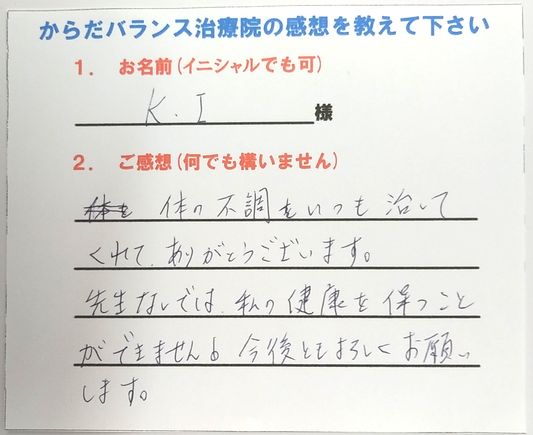 からだバランス治療院の感想を教えて下さい
1. お名前(イニシャルでも可)
K.I 様
2. ご感想(何でも構いません)
体の不調をいつも治して
くれて、ありがとうございます。
先生なしでは、私の健康を保つこと
ができません。今後ともよろしくお願い
します。